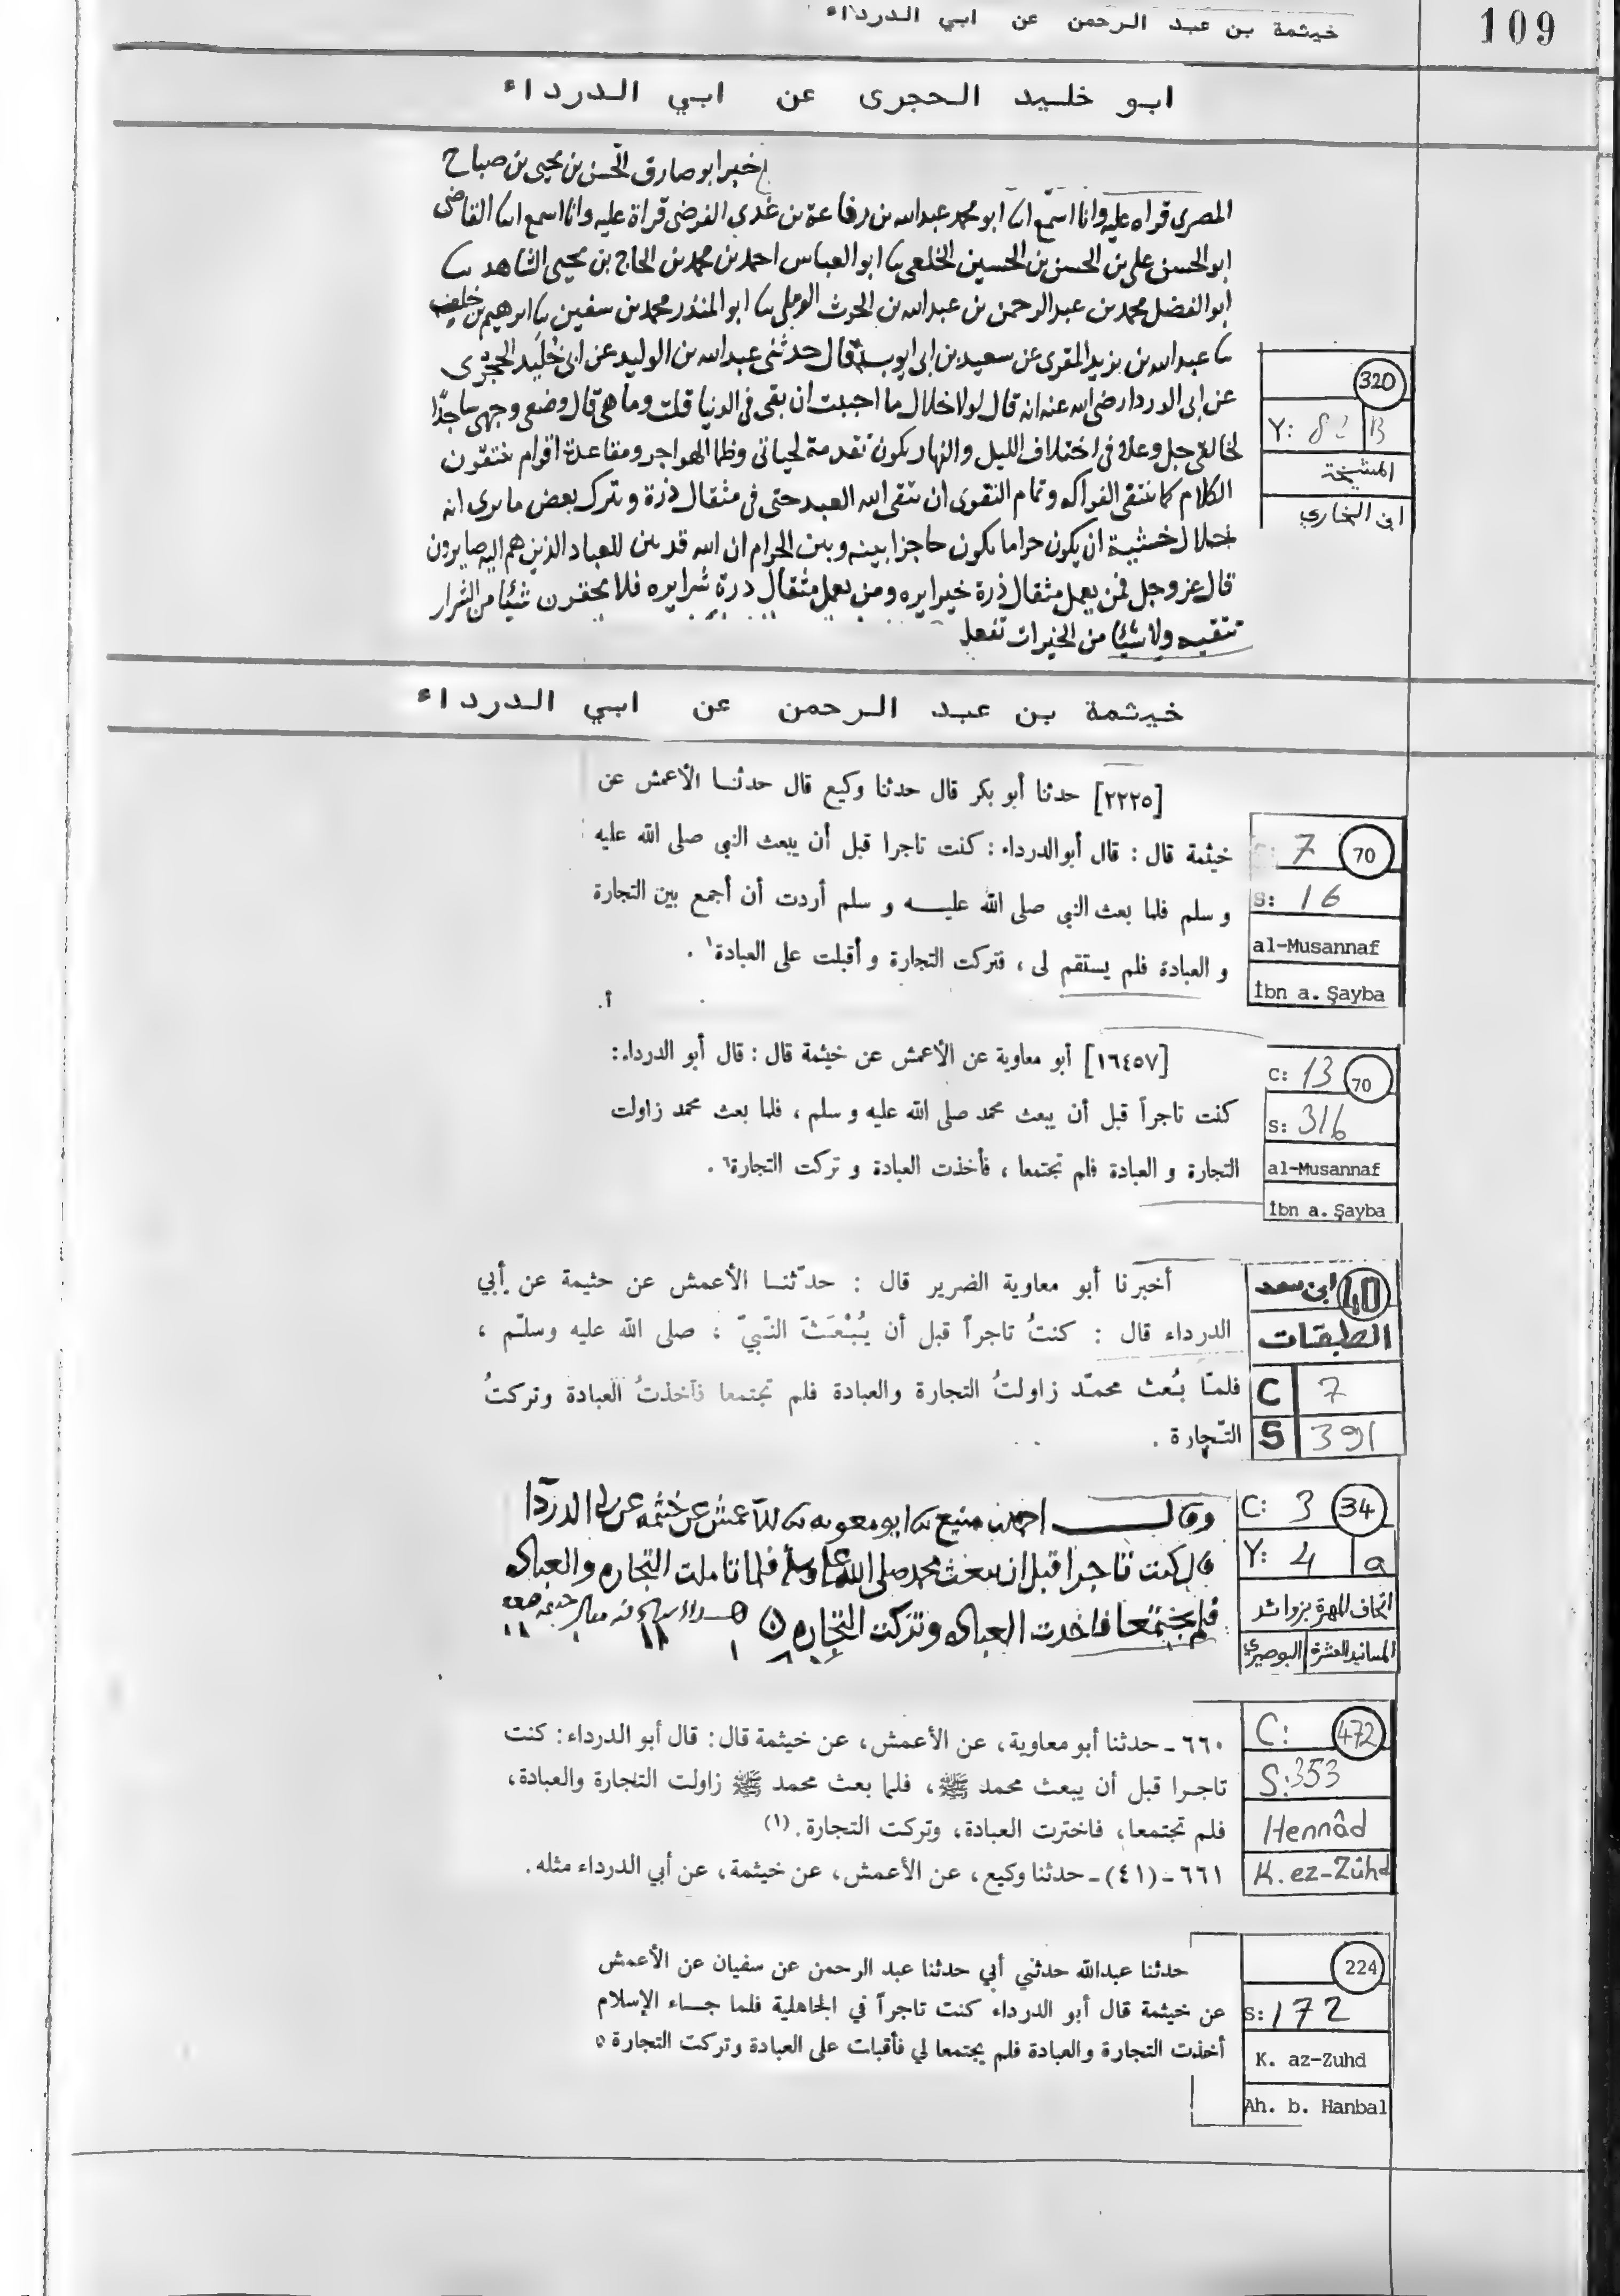 109
خيثمة بن عبد الرحمن عن ابي الدرداء
ابو خليد الحجرى عن ابي الدرداء
اخبرابو صادق الحسن بن يحيى بن صباح
المصرى قراه عليه وانا اسمع انا ابو محمد عبدالله بن رفاعة بن غدير الفرضى قراة عليه وانا اسمع انا القاضى
ابو الحسن على بن الحسن بن الحسين الخلعى نا ابو العباس احمد بن محمد بن الحاج بن يحيى الشاهد نا
ابو الفضل محمد بن عبد الرحمن بن عبدالله بن الحرث الرملى نا ابو المنذر محمد بن سفين نا ابرهيم بن خلف
نا عبدالله بن يزيد المقرى عن سعيد بن ابى ايوب قال حدثنى عبدالله بن الوليد عن ابى خليد الحجرى
عن ابى الدردا رضى الله عنه انه قال لولا خلال ما احببت ان ابقى فى الدنيا قلت وما هى قال وضعى وجهى ساجدًا
لخالقى جل وعلا فى اختلاف الليل والنهار يكون تقدمة لحياتى وظما الهواجر ومقاعدة اقوام ينتقون
الكلام كما تنتقى الفواكه وتمام التقوى ان يتقى الله العبد حتى فى مثقال ذرة ويترك بعض ما يرى انه
حلال خشية ان يكون حراما يكون حاجزا بينه وبين الحرام ان الله قد بين للعباد الذين هم اليه صايرون
قال عز وجل فمن يعمل مثقال ذرة خيرا يره ومن يعمل مثقال ذرة شرا يره فلا تحقرن شيئا من الشر ان
تتقيه ولا شيئا من الخيرات تفعل
320
Y: 8 B
المشيخة
ابن البخاري
خيثمة بن عبد الرحمن عن ابي الدرداء
[٢٢٢٥] حدثنا أبو بكر قال حدثنا وكيع قال حدثنـا الأعمش عن
خيثمة قال : قال أبوالدرداء : كنت تاجرا قبل أن يبعث النبي صلى الله عليه
و سلم فلما بعث النبي صلى الله عليـــه و سلم أردت أن أجمع بين التجارة
و العبادة فلم يستقم لى ، فتركت التجارة و أقبلت على العبادة١ .
7 70
S: 16
al-Musannaf
İbn a. Şayba
[١٦٤٥٧] أبو معاوية عن الأعمش عن خيثمة قال : قال أبو الدرداء:
كنت تاجراً قبل أن يبعث محمد صلى الله عليه و سلم ، فلما بعث محمد زاولت
التجارة و العبادة فلم تجتمعا ، فأخذت العبادة و تركت التجارة٦ .
C: 13 70
S: 316
al-Musannaf
İbn a. Şayba
أخبرنا أبو معاوية الضرير قال : حدّثنـا الأعمش عن خثيمة عن أبي
الدرداء قال : كنتُ تاجراً قبل أن يُبْعَثَ النّبيّ ، صلى الله عليه وسلّم ،
فلمّا بُعث محمّد زاولتُ التجارة والعبادة فلم تجتمعا فأخذتُ العبادة وتركتُ
التّجارة .
ابن سعد 40
الطبقات
C 7
S 391
وقال احمد بن منيع نا ابو معويه نا الاعمش عن خثيمه عن ابى الدردا
قال كنت تاجرا قبل ان يبعث محمد صلى الله عليه وسلم فلما تاملت التجاره والعباده
فلم يجتمعا فاخذت العباده وتركت التجاره
C: 3 34
Y: 4 a
اتحاف المهرة بزوائد
المسانيد العشرة البوصيري
٦٦٠ ـ حدثنا أبو معاوية، عن الأعمش، عن خيثمة قال: قال أبو الدرداء: كنت
تاجـرا قبل أن يبعث محمد ﷺ، فلما بعث محمد ﷺ زاولت التجارة والعبادة،
فلم تجتمعا، فاخترت العبادة، وتركت التجارة. (١)
٦٦١ ـ (٤١) ـ حدثنا وكيع، عن الأعمش، عن خيثمة، عن أبي الدرداء مثله.
C: 472
S: 353
Hennâd
K. ez-Zühd
حدثنا عبدالله حدثني أبي حدثنا عبد الرحمن عن سفيان عن الأعمش
عن خيثمة قال أبو الدرداء كنت تاجراً في الجاهلية فلما جـــاء الإسلام
أخذت التجارة والعبادة فلم يجتمعا لي فأقبلت على العبادة وتركت التجارة
224
S: 172
K. az-Zuhd
Ah. b. Hanbal